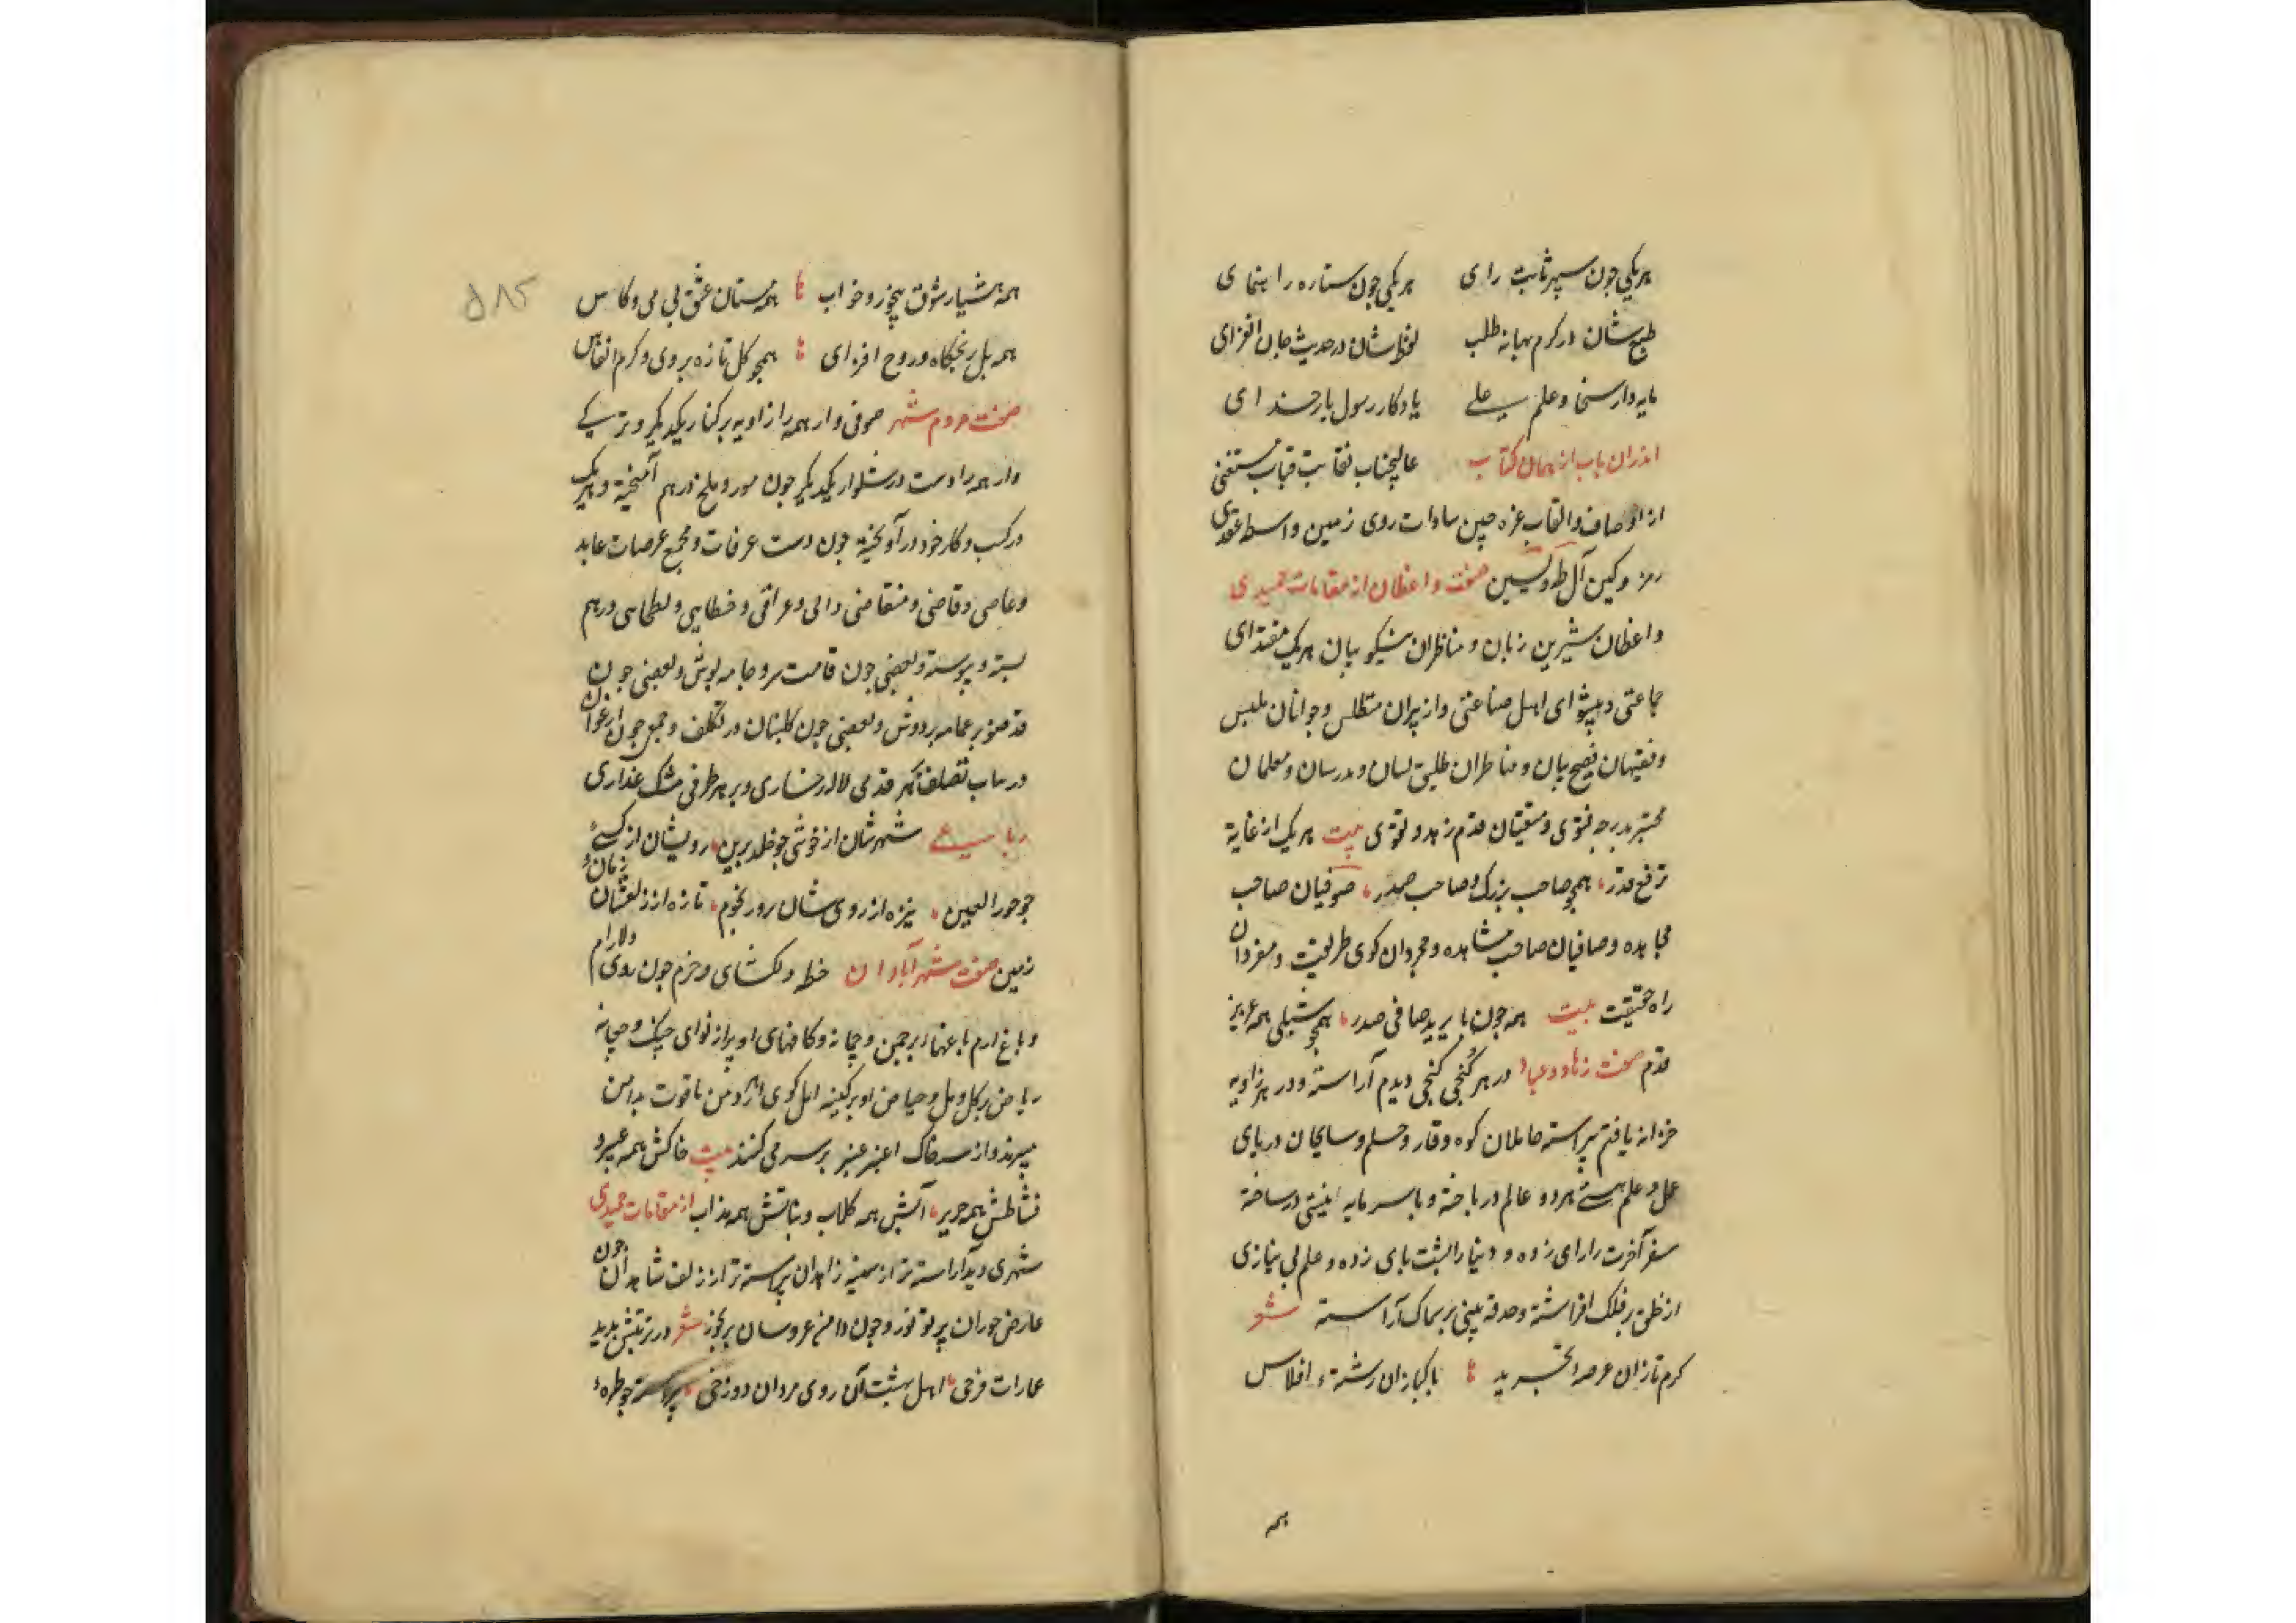 هریکی چون سپهر ثابت رای هریکی چون ستاره راهنمای
طبع شان در کرم بهانه طلب لفظ شان در حدیث جان افزای
مایه دار سخا و علم علی یادکار رسول بار خدای
اندران باب از همان کتاب عالیجناب نقابت قباب مستغنی
از اوصاف و القاب غره جبین سادات روی زمین واسطه عقدی
رمز و کین آل طه و یسین صفت واعظان از مقامات حمیدی
واعظان شیرین زبان و مناظران نیکو بیان هریک مقتدای
جماعتی و پیشوای اهل صناعتی و از پیران متطلس و جوانان ملبس
و فقیهان فصیح بیان و مناظران طلیق لسان و مدرسان و معلمان
محتبر بدرجه فتوی و مفتیان قدم زهد و تقوی بیت هریک از غایة
ترفع قدر همچو صاحب بزرک و صاحب صدر صوفیان صاحب
مجاهده و صافیان صاحب مشاهده و مجردان کوی طریقت و مفردان
راه حقیقت بیت همه چون بایزید صافی صدر همچو شبلی همه عزیز
قدم صفت زهاد و عباد در هر کنجی کنجی دیدم آراسته و در هر زاویه
خزانه یافتم پیراسته حاملان کوه وقار و حلم و سابحان دریای
عمل و علم هستی هر دو عالم در باخته و با سرمایه نیستی در ساخته
سفر آخرت را رای زده و دنیا را پشت پای زده و علم بی نیازی
از خلق بر فلک افراشته و حدقه بینی بر سماک آراسته شعر
کرم تازان عرصه تجرید پاکبازان رشته افلاس
همه
همه هشیار شوق بیخور و خواب همه مستان عشق بی می و کاس
همه بل رنجکاه و روح افزای همچو کل تازه بروی و کرم انفاس
صفت مردم شهر صوفی وار همه را زاویه بر کنار یکدیکر و ترسکی
وار همه را دست در شلوار یکدیکر چون مور و ملخ درهم آمیخته و هریک
در کسب و کار خود در آویخته چون دست عرفات و مجمع عرصات عابد
و عاصی و قاضی و متقاضی والی و عراقی و خطایی و بطحایی درهم
بسته و پیوسته و بعضی چون قامت سرو جامه پوش و بعضی چون
قد صنوبر عمامه بر دوش و بعضی چون کلبنان در تکلف و جمع چون ارغوان
در باب تصلف بهر قدمی لاله رخساری و بر هر طرفی مشک عذاری
رباعی شهرشان از خوشی چو خلد برین رویشان از کشی
چو حور العین نیزه از روی شان رور نجوم تازه از زلفشان زمان
زمین صفت شهر آبادان خطه دلکشای و خرم چون روی دلارام
و باغ ارم باغهاء پر چمن و چمانه و کاخهای او پر از نوای چنک و چغانه
ریاض پر کل و مل و حیاض او پر کینه اهل کوی از دمن یاقوت بدامن
میبرند و از سر خاک اغبر عنبر بر سر می کنند بیت خاکش همه عبیر و
نشاطش همه حریر آتش همه کلاب و بناتش همه مذاب از مقامات حمیدی
شهری دیدم آراسته تر از سینه زاهدان پیراسته تر از زلف شاهدان چون
عارض حوران پر نور و چون دامن عروسان پر بخور شعر در تربتش پدید
عمارات فرخی اهل بهشت آن روی مردان دوزخی پیراسته چو طره
۵۸۵